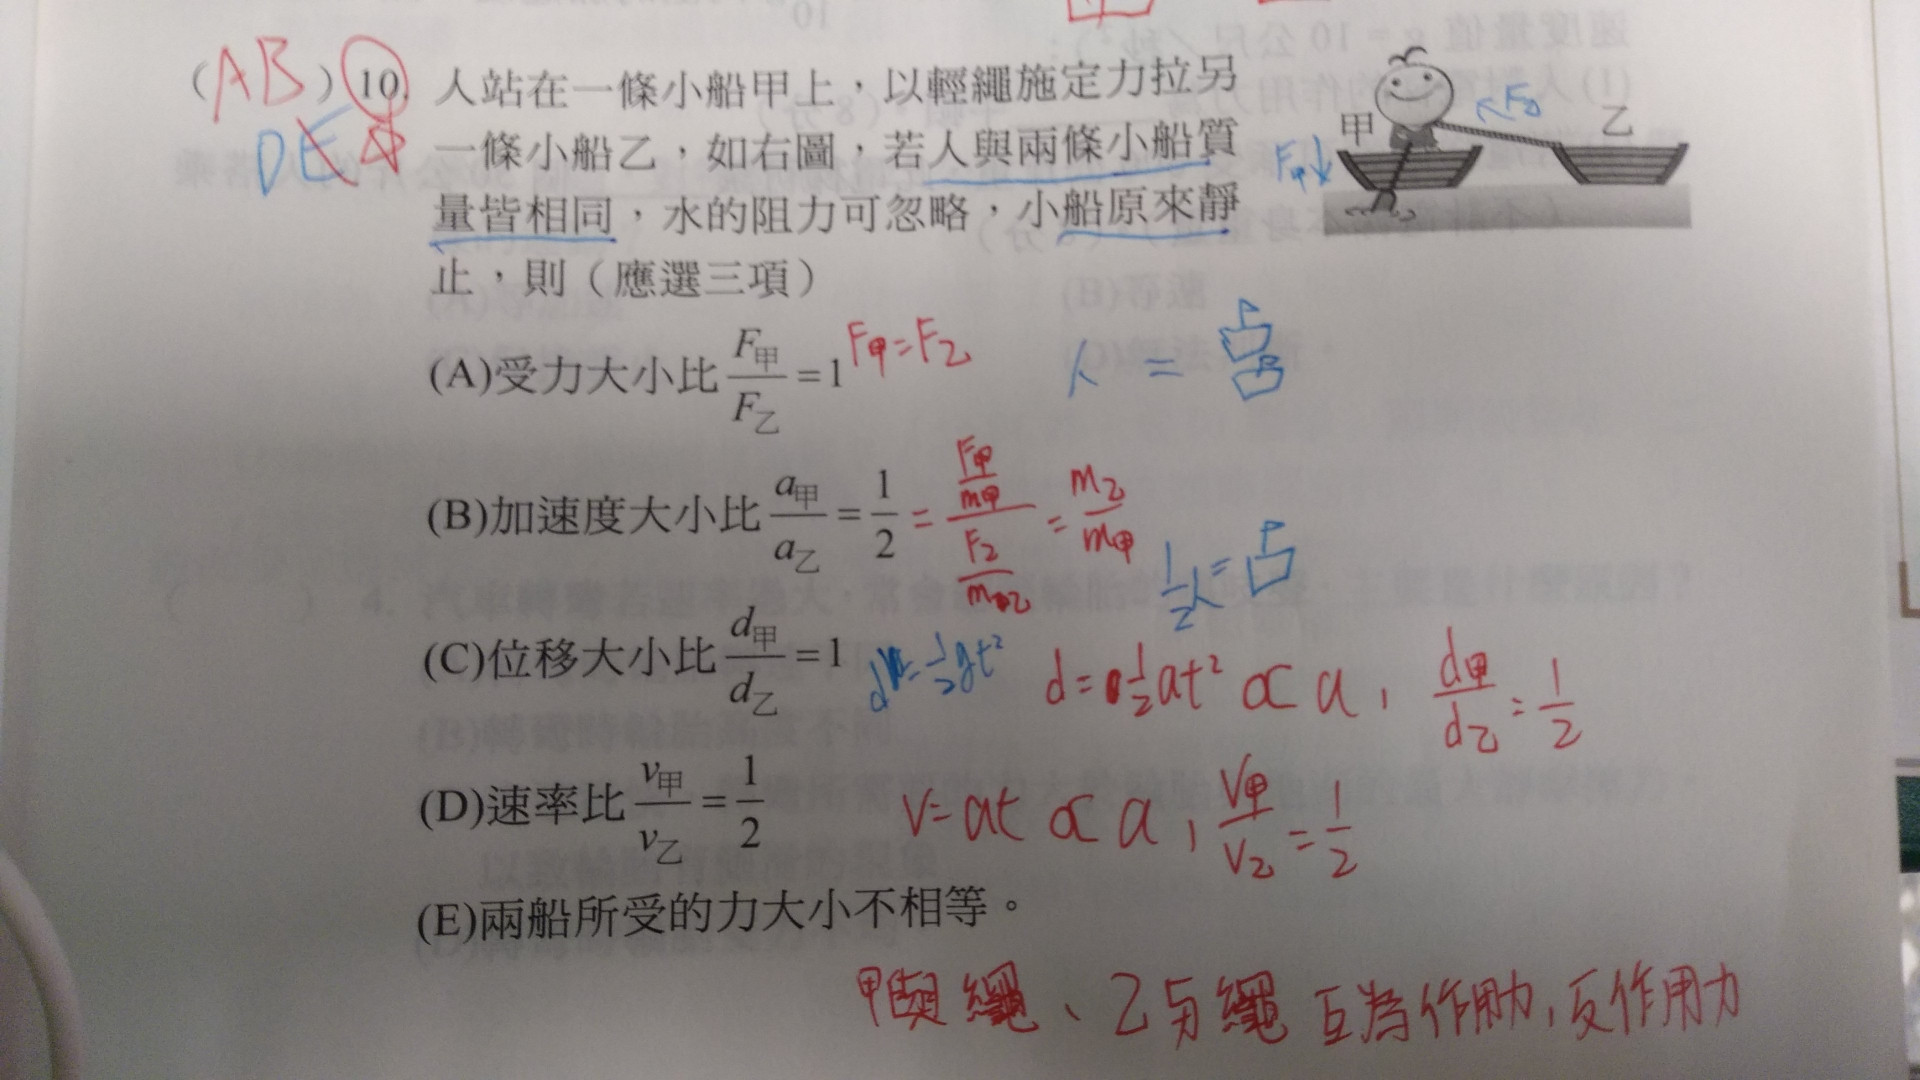 (AB) 10. 人站在一條小船甲上，以輕繩施定力拉另
DE
一條小船乙，如右圖，若人與兩條小船質
量皆相同，水的阻力可忽略，小船原來靜
止，則（應選三項）
甲 乙
F甲↓ F乙
(A)受力大小比 F甲/F乙 = 1 F甲=F乙
人 =
(B)加速度大小比 a甲/a乙 = 1/2 = (F甲/m甲)/(F乙/m乙) = m乙/m甲
1/2人=
(C)位移大小比 d甲/d乙 = 1 d=1/2gt² d=1/2at² ∝ a, d甲/d乙 = 1/2
(D)速率比 v甲/v乙 = 1/2 V=at ∝ a, V甲/V乙 = 1/2
(E)兩船所受的力大小不相等。
甲與繩、乙与繩互為作用力,反作用力